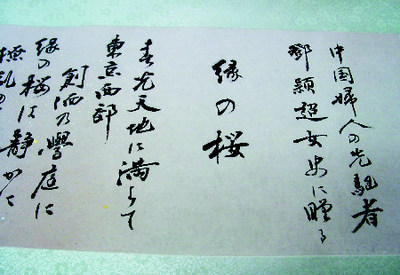 中国婦人の先駆者
鄧穎超女史に贈る
縁の桜
春光天地に満ちて
東京西部
創価の学庭に
縁の桜は静かに
撩乱の